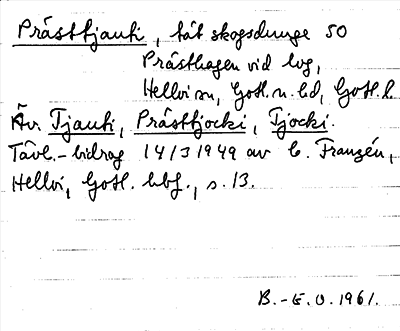 Prästtjauti, tät skogsdunge SO
Prästhagen vid lvg,
Hellvi sn, Gotl. n. hd, Gotl. l.
Äv. Tjauti, Prästtjocki, Tjocki.
Tävl.-bidrag 14/3 1949 av C. Franzén,
Hellvi, Gotl. hbf., s. 13.
B.-E. O. 1961.